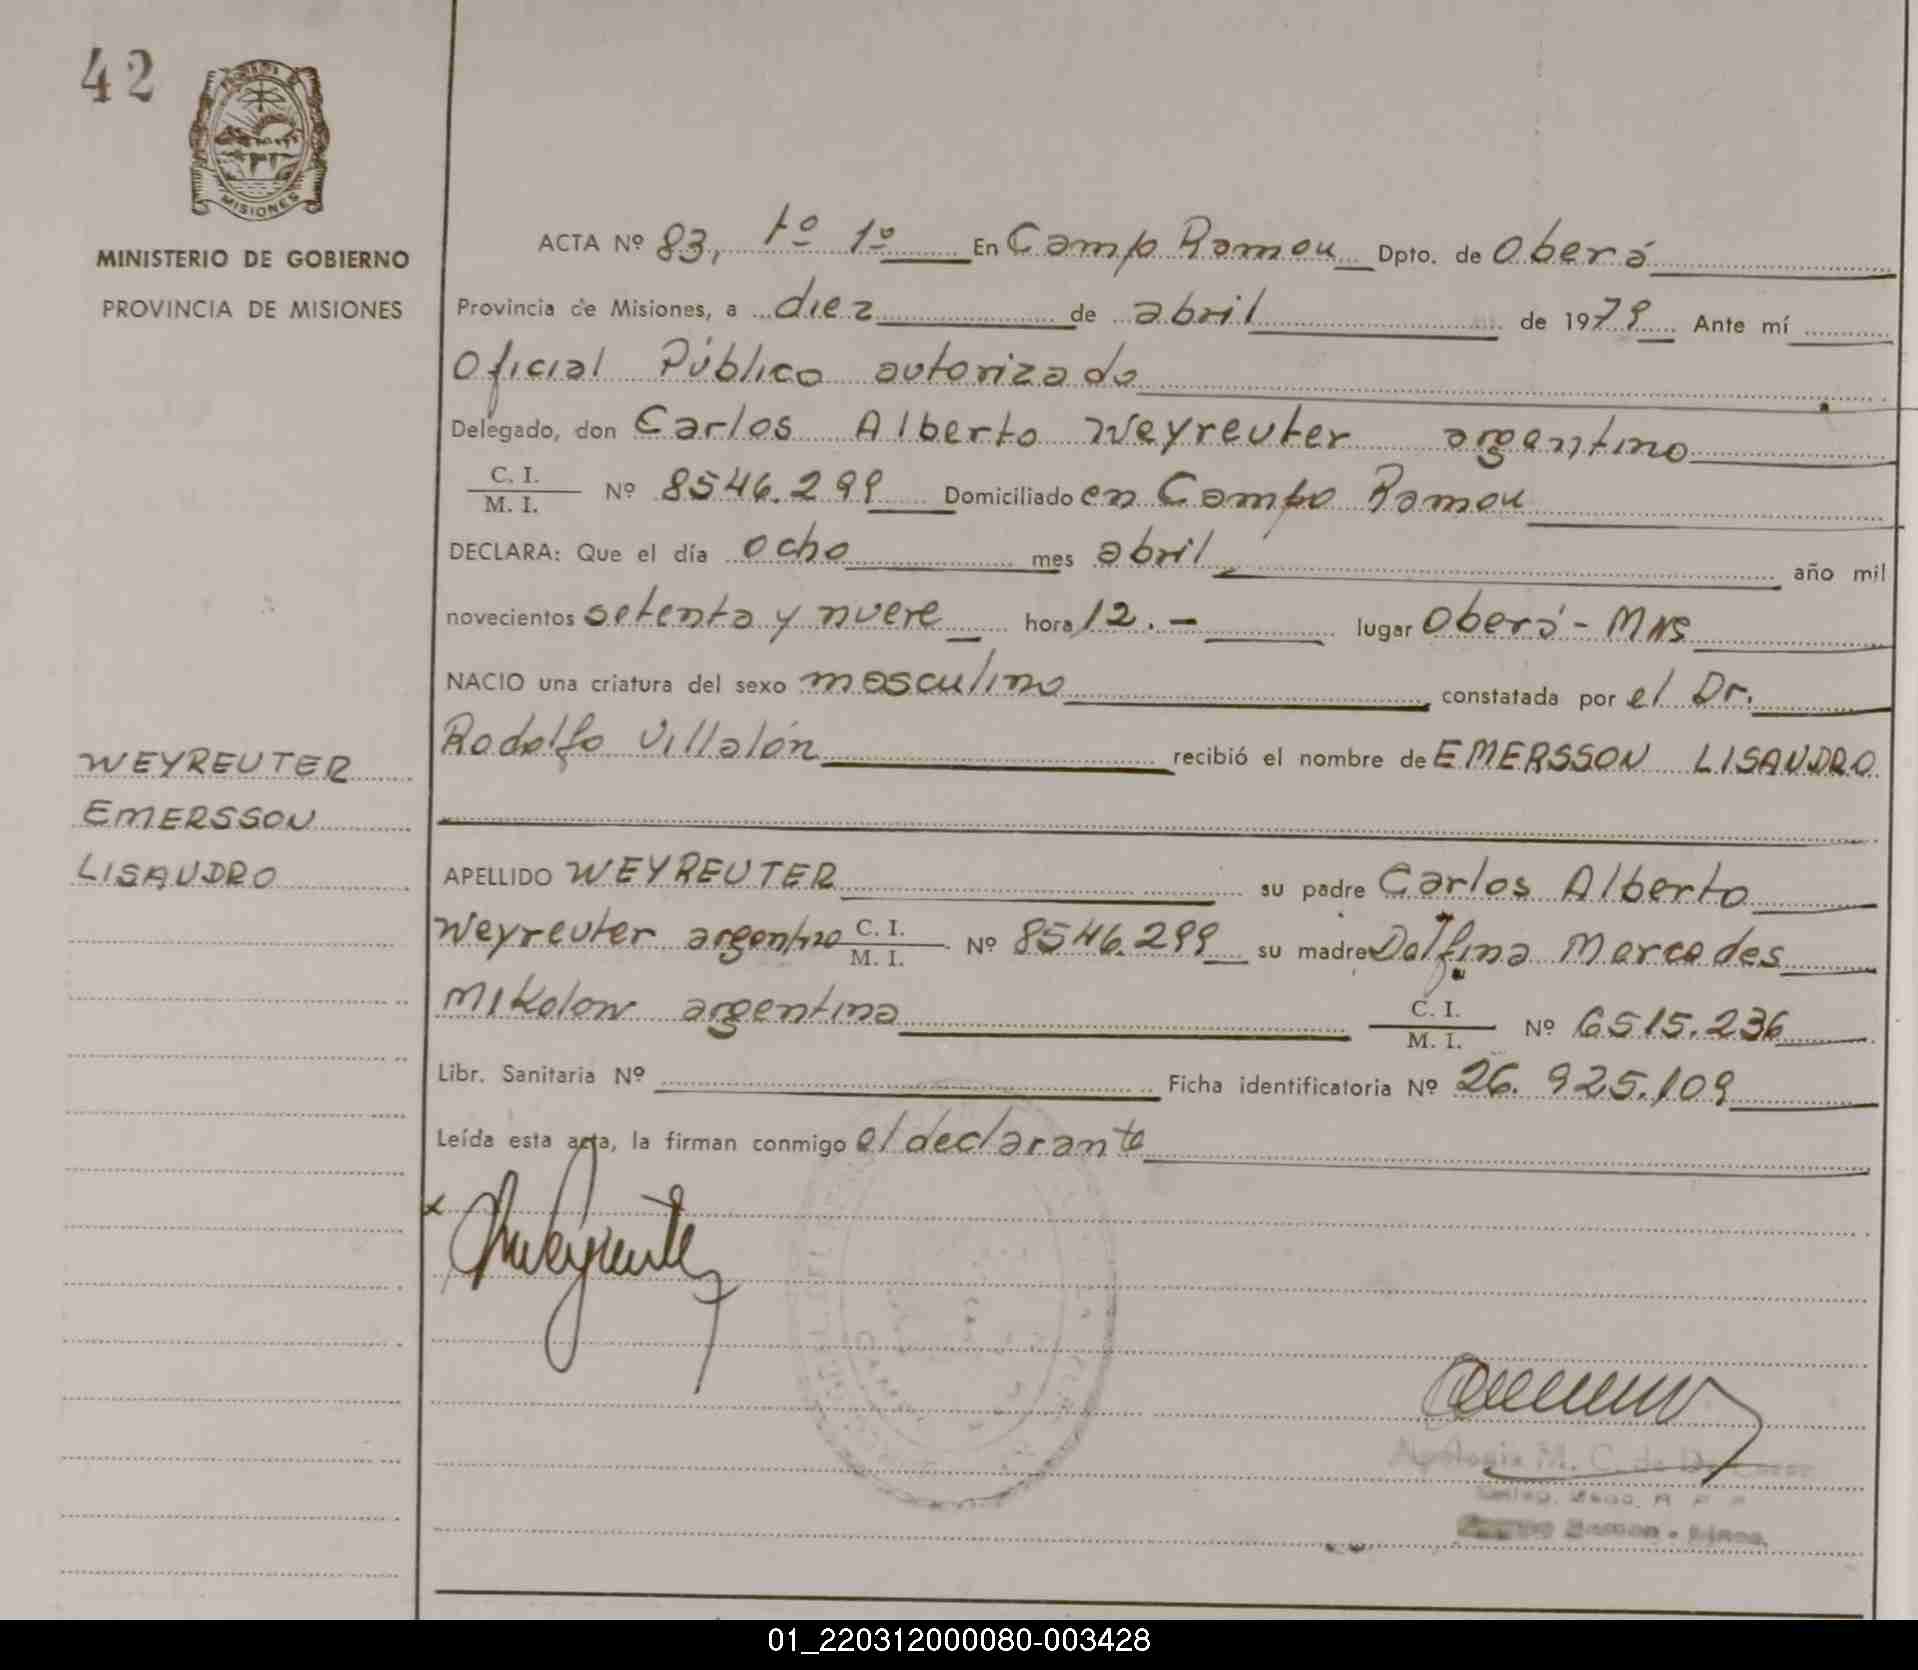 42
MISIONES
MINISTERIO DE GOBIERNO
PROVINCIA DE MISIONES
ACTA Nº 83, tº 1º En Campo Ramou Dpto. de Oberá
Provincia de Misiones, a diez de abril de 1979 Ante mí
Oficial Público autorizado
Delegado, don Carlos Alberto Weyreuter argentino
C. I.
M. I. Nº 8546.299 Domiciliado en Campo Ramou
DECLARA: Que el día ocho mes abril año mil
novecientos setenta y nueve hora 12.- lugar Oberá - Mns
NACIO una criatura del sexo masculino constatada por el Dr.
Rodolfo Villalón recibió el nombre de EMERSSON LISANDRO
WEYREUTER
EMERSSON
LISANDRO
APELLIDO WEYREUTER su padre Carlos Alberto
Weyreuter argentino C. I.
M. I. Nº 8546.299 su madre Delfina Mercedes
Mikolow argentina C. I.
M. I. Nº 6515.236
Libr. Sanitaria Nº Ficha identificatoria Nº 26.925.109
Leída esta acta, la firman conmigo el declarante
x
M. C. de
01_220312000080-003428